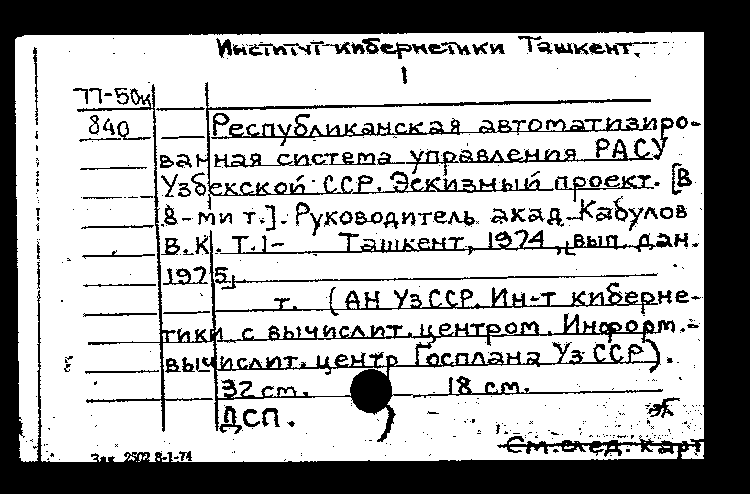 Институт кибернетики Ташкент.
1
77-50к
840
Республиканская автоматизиро-
ванная система управления РАСУ
Узбекской ССР. Эскизный проект. [В
8-ми т.]. Руководитель акад. Кабулов
В.К. Т.1- Ташкент, 1974, [вып. дан.
1975]
т. (АН УзССР. Ин-т киберне-
тики с вычислит. центром. Информ.-
вычислит. центр Госплана УзССР).
32 см. 18 см.
ДСП. )
См. след. карт
Зак. 2502 8-1-74